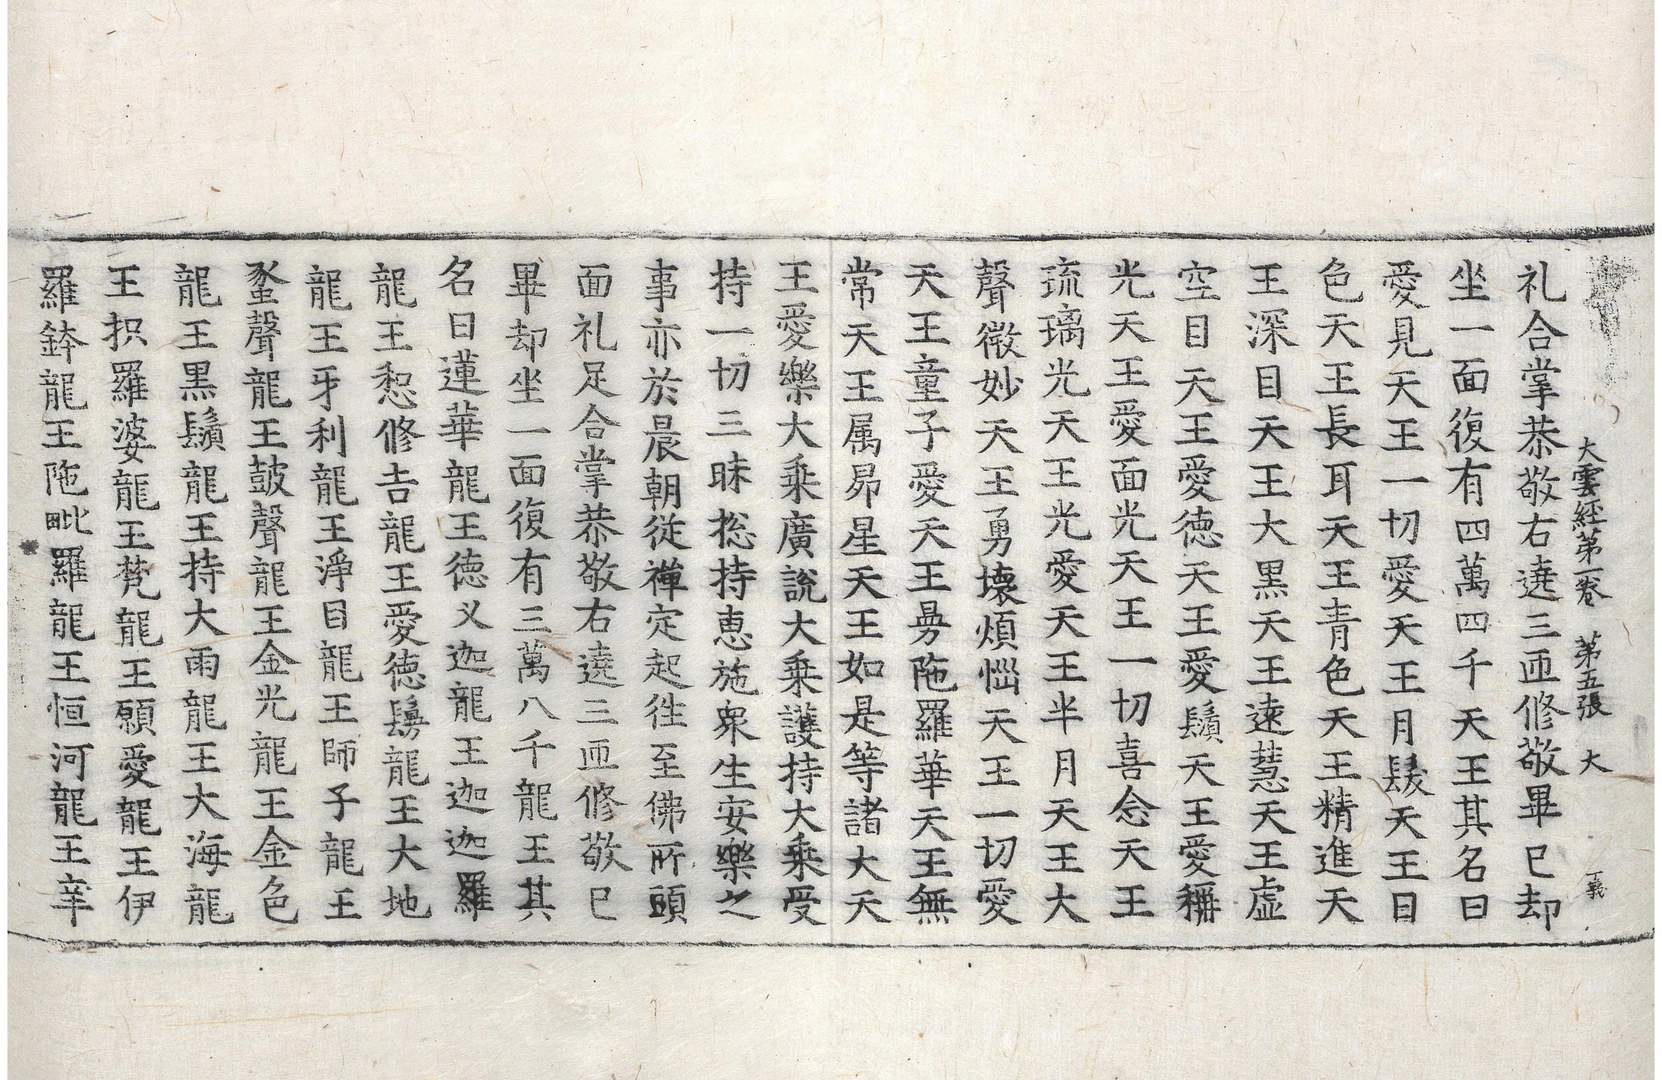 大雲經第一卷　第五張　大
礼合掌恭敬右遶三匝修敬畢已却
坐一面復有四萬四千天王其名曰
愛見天王一切愛天王月髮天王目
色天王長耳天王青色天王精進天
王深目天王大黑天王速慧天王虛
空目天王愛德天王愛鬚天王愛稱
光天王愛面光天王一切喜念天王
琉璃光天王光愛天王半月天王大
聲微妙天王勇壞煩惱天王一切愛
天王童子愛天王曼陁羅華天王無
常天王属昴星天王如是等諸大天
王愛樂大乘廣說大乘護持大乘受
持一切三昧揔持惠施衆生安樂之
事亦於晨朝從禪定起往至佛所頭
面礼足合掌恭敬右遶三匝修敬已
畢却坐一面復有三萬八千龍王其
名曰蓮華龍王德叉迦龍王迦迦羅
龍王恕修吉龍王愛德鬘龍王大地
龍王牙利龍王淨目龍王師子龍王
蚉聲龍王鼓聲龍王金光龍王金色
龍王黒鬚龍王持大雨龍王大海龍
王抧羅婆龍王梵龍王願愛龍王伊
羅鉢龍王陁毗羅龍王恒河龍王辛